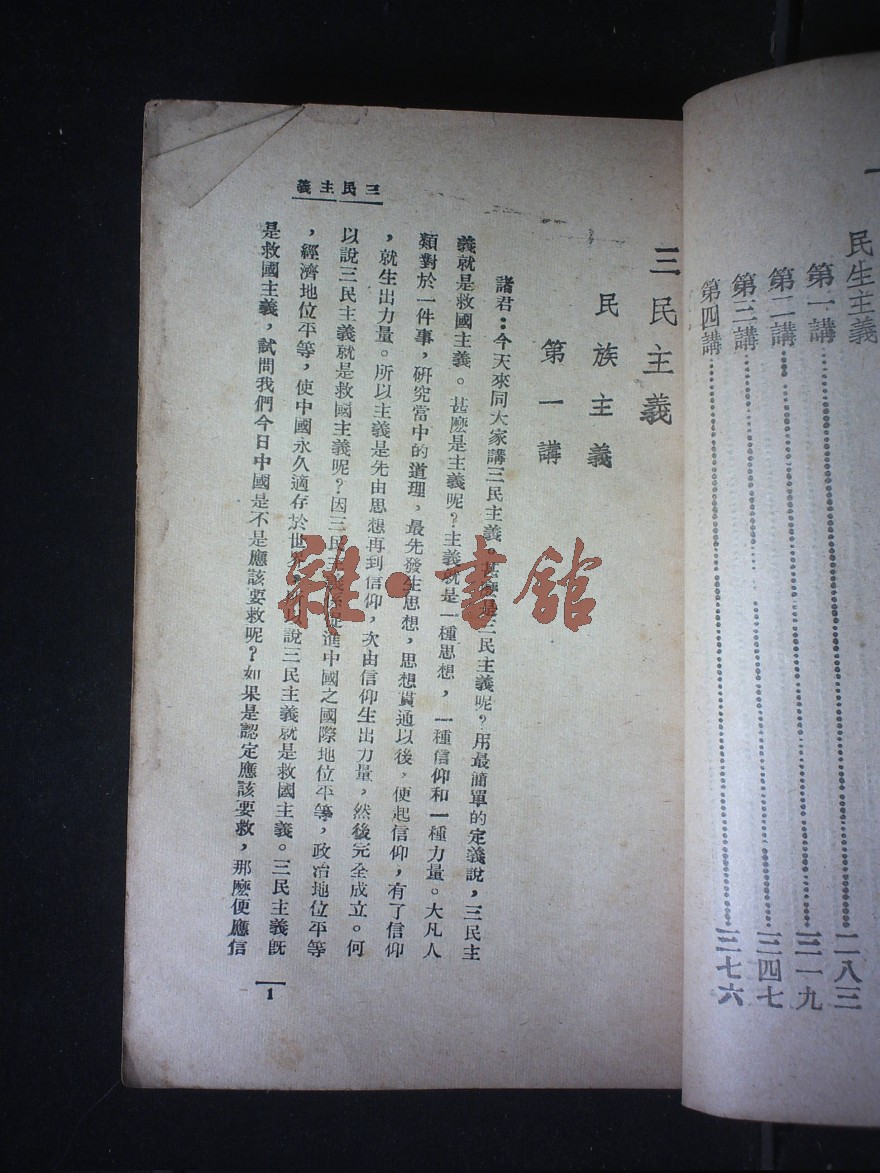 民生主義
第一講……二八三
第二講……三一九
第三講……三四七
第四講……三七六
三民主義
三民主義
民族主義
第一講
諸君:今天來同大家講三民主義。甚麽是三民主義呢?用最簡單的定義說,三民主
義就是救國主義。甚麽是主義呢?主義就是一種思想,一種信仰和一種力量。大凡人
類對於一件事,硏究當中的道理,最先發生思想,思想貫通以後,便起信仰,有了信仰
,就生出力量。所以主義是先由思想再到信仰,次由信仰生出力量,然後完全成立。何
以說三民主義就是救國主義呢?因三民主義係促進中國之國際地位平等,政治地位平等
,經濟地位平等,使中國永久適存於世界所以說三民主義就是救國主義。三民主義旣
是救國主義,試問我們今日中國是不是應該要救呢?如果是認定應該要救,那麽便應信
1
雜·書館